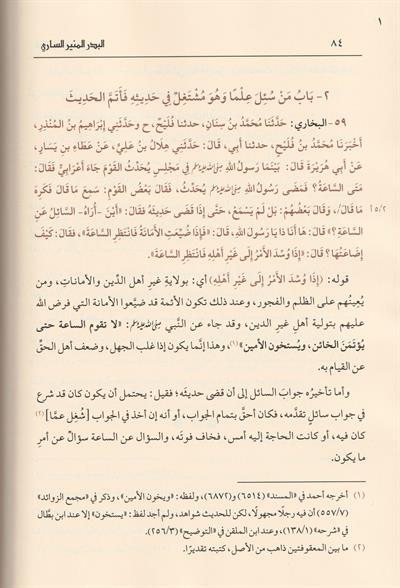 ١
٨٤
البدر المنير الساري
٢- بَابُ مَنْ سُئِلَ عِلْمًا وَهُوَ مُشْتَغِلٌ فِي حَدِيثِهِ فَأَتَمَّ الحَدِيثَ
٥٩- البخاري: حَدَّثَنَا مُحَمَّدُ بنُ سِنَانٍ، حدثنا فُلَيْحٌ، ح وحَدَّثَنِي إِبْرَاهِيمُ بنُ المُنْذِرِ،
أَخْبَرَنَا مُحَمَّدُ بنُ فُلَيْحٍ، حدثنا أَبِي، قَالَ: حَدَّثَنِي هِلَالُ بنُ عَلِيٍّ، عَنْ عَطَاءِ بنِ يَسَارٍ،
عَنْ أَبِي هُرَيْرَةَ قَالَ: بَيْنَمَا رَسُولُ اللهِ ﷺ فِي مَجْلِسٍ يُحَدِّثُ القَوْمَ جَاءَ أَعْرَابِيٌّ فَقَالَ:
مَتَى السَّاعَةُ؟ فَمَضَى رَسُولُ اللهِ ﷺ يُحَدِّثُ، فَقَالَ بَعْضُ القَوْمِ: سَمِعَ مَا قَالَ فَكَرِهَ
مَا قَالَ/، وَقَالَ بَعْضُهُمْ: بَلْ لَمْ يَسْمَعْ، حَتَّى إِذَا قَضَى حَدِيثَهُ فقَالَ: «أَيْنَ -أُرَاهُ- السَّائِلُ عَنِ
٥/٢أ
السَّاعَةِ؟» قَالَ: هَا أَنَا ذا يَا رَسُولَ اللهِ، قَالَ: «فَإِذَا ضُيِّعَتِ الأَمَانَةُ فَانْتَظِرِ السَّاعَةَ»، فقَالَ: كَيْفَ
إِضَاعَتُهَا؟ قَالَ: «إِذَا وُسِّدَ الأَمْرُ إِلَى غَيْرِ أَهْلِهِ فَانْتَظِرِ السَّاعَةَ».
قوله: (إِذَا وُسِّدَ الأَمْرُ إِلَى غَيْرِ أَهْلِهِ) أي: بولايةِ غيرِ أهلِ الدِّين والأماناتِ، ومن
يُعِينُهُم على الظلمِ والفجورِ، وعند ذلك تكون الأئمة قد ضيَّعوا الأمانة التي فرض الله
عليهم بتولية أهلِ غيرِ الدين، وقد جاء عن النَّبي ﷺ: «لا تقوم الساعة حتى
يُؤتَمَنَ الخائن، ويستخون الأمين»(١)، وهذا إنَّما يكون إذا غلب الجهل، وضعف أهل الحقِّ
عن القيام به.
وأما تأخيرُه جوابَ السائل إلى أن قضى حديثَه؛ فقيل: يحتمل أن يكون كان قد شرع
في جواب سائلٍ تقدَّمه، فكان أحقَّ بتمام الجواب، أو أنه إن أخذ في الجواب [شُغِل عمَّا](٢)
كان فيه، أو كانت الحاجة إليه أمس، فخاف فوتَه، والسؤال عن الساعة سؤالٌ عن أمرِ
ما يكون.
(١) أخرجه أحمد في «المسند» (٦٥١٤) و(٦٨٧٢)، ولفظه: «ويخون الأمين»، وذكر في «مجمع الزوائد»
(٥٥٧/٧) أن فيه رجلًا مجهولًا، لكن للحديث شواهد، ولم أجد لفظ: «يستخون» إلا عند ابن بطَّال
في «شرحه» (١٣٨/١)، وعند ابن الملقن في «التوضيح» (٢٥٦/٣).
(٢) ما بين المعقوفتين ذاهب من الأصل، كتبته تقديرًا.